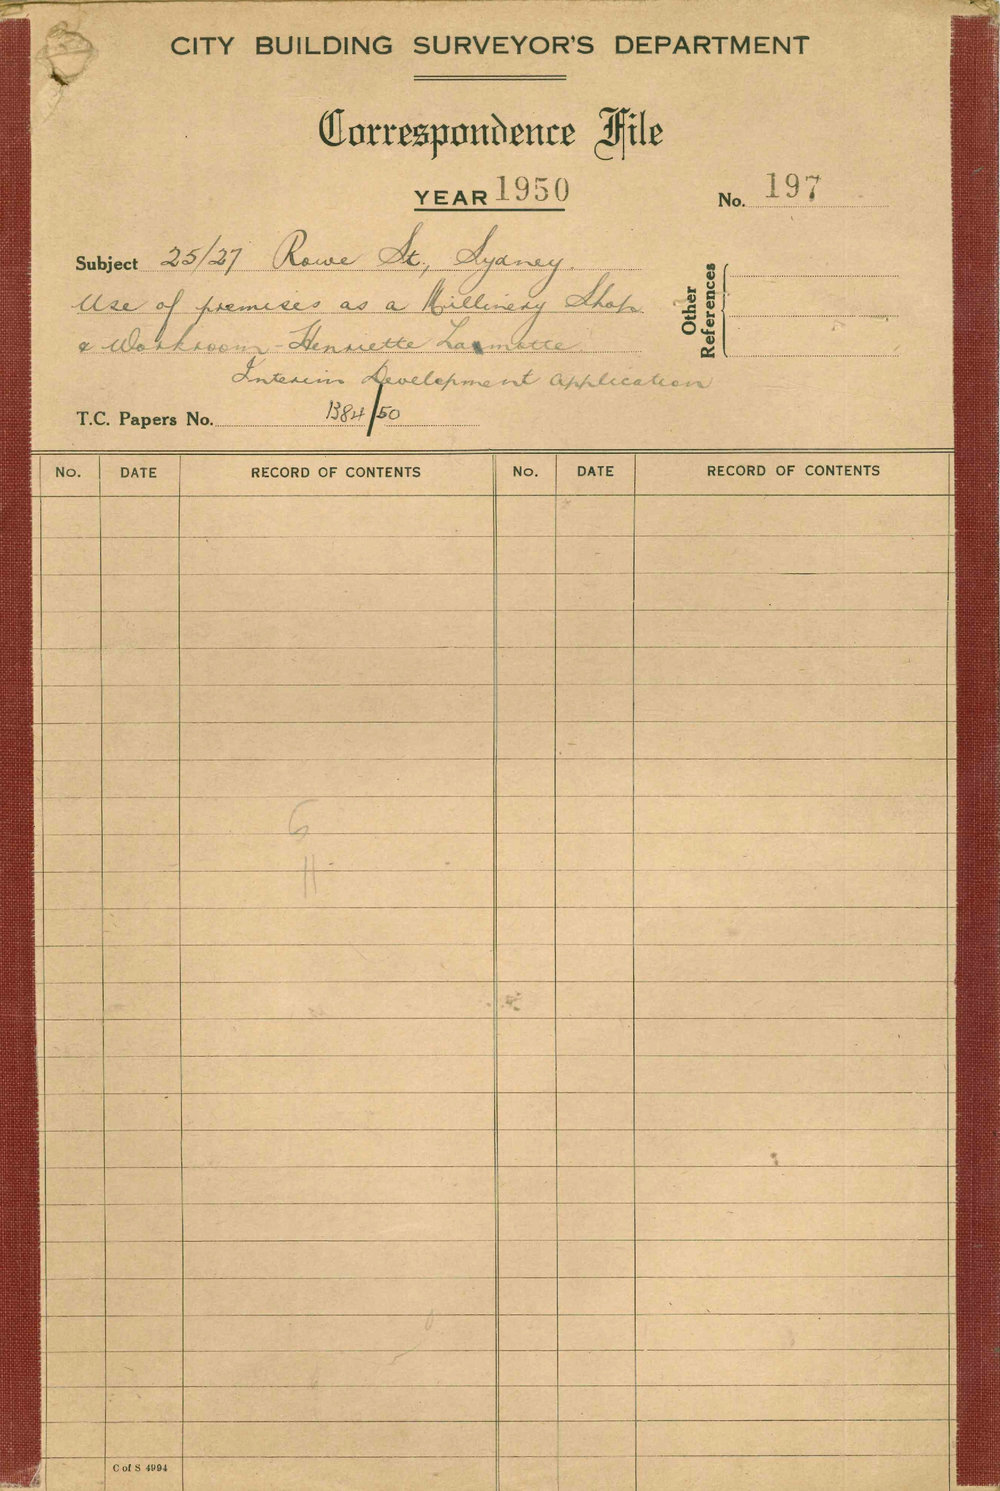 CITY BUILDING SURVEYOR'S DEPARTMENT
Correspondence File
YEAR 1950
No. 197
Subject 25/27 Rowe St., Sydney.
Use of premises as a Millinery Shop
& Workroom - Henriette Lamotte
Interim Development Application
Other References
T.C. Papers No. 1384/50
No. DATE RECORD OF CONTENTS No. DATE RECORD OF CONTENTS
C of S 4994